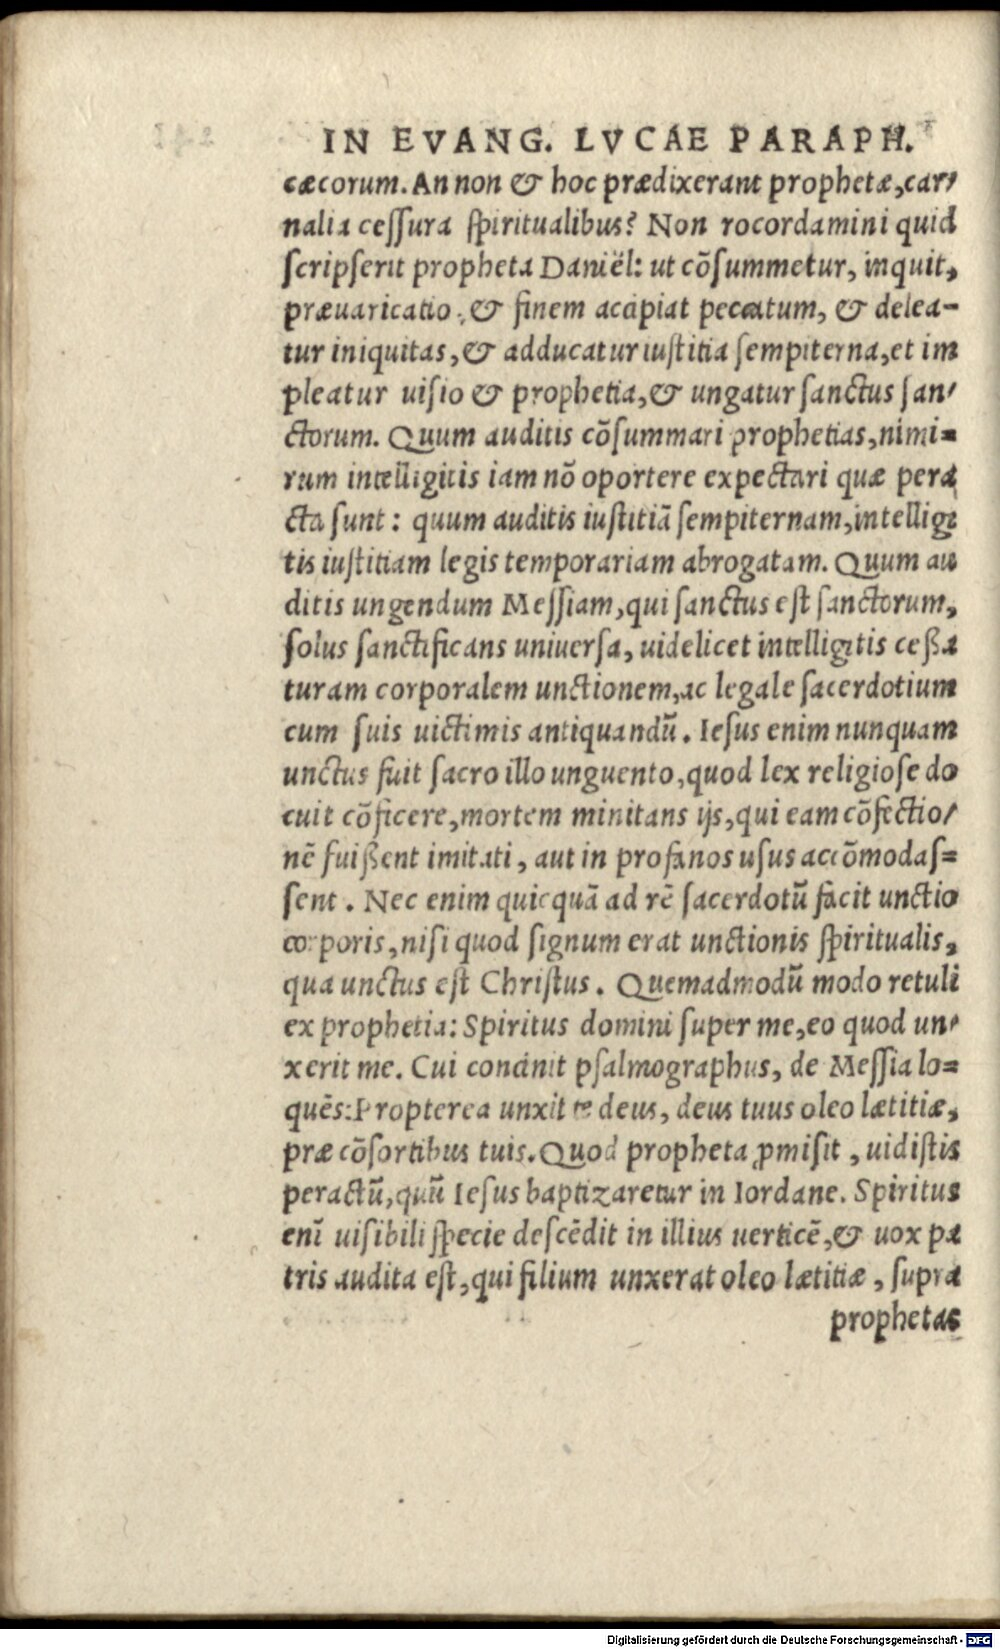 IN EVANG. LVCAE PARAPH.
cæcorum. An non & hoc prædixerant prophetæ, car-
nalia cessura spiritualibus? Non rocordamini quid
scripserit propheta Daniël: ut cōsummetur, inquit,
præuaricatio, & finem accipiat peccatum, & delea-
tur iniquitas, & adducatur iustitia sempiterna, et im
pleatur uisio & prophetia, & ungatur sanctus san-
ctorum. Quum auditis cōsummari prophetias, nimi-
rum intelligitis iam nō oportere expectari quæ pera
cta sunt: quum auditis iustitiā sempiternam, intelligi
tis iustitiam legis temporariam abrogatam. Quum au
ditis ungendum Messiam, qui sanctus est sanctorum,
solus sanctificans uniuersa, uidelicet intelligitis ceßa
turam corporalem unctionem, ac legale sacerdotium
cum suis uictimis antiquandū. Iesus enim nunquam
unctus fuit sacro illo unguento, quod lex religiose do
cuit cōficere, mortem minitans ijs, qui eam cōfectio-
nē fuißent imitati, aut in profanos usus accōmodas-
sent. Nec enim quicquā ad rē sacerdotū facit unctio
corporis, nisi quod signum erat unctionis spiritualis,
qua unctus est Christus. Quemadmodū modo retuli
ex prophetia: Spiritus domini super me, eo quod un-
xerit me. Cui concinit psalmographus, de Messia lo-
quēs: Propterea unxit te deus, deus tuus oleo lætitiæ,
præ cōsortibus tuis. Quod propheta ꝓmisit, uidistis
peractū, quū Iesus baptizaretur in Iordane. Spiritus
enī uisibili specie descēdit in illius uerticē, & uox pa
tris audita est, qui filium unxerat oleo lætitiæ, supra
prophetas
Digitalisierung gefördert durch die Deutsche Forschungsgemeinschaft - DFG